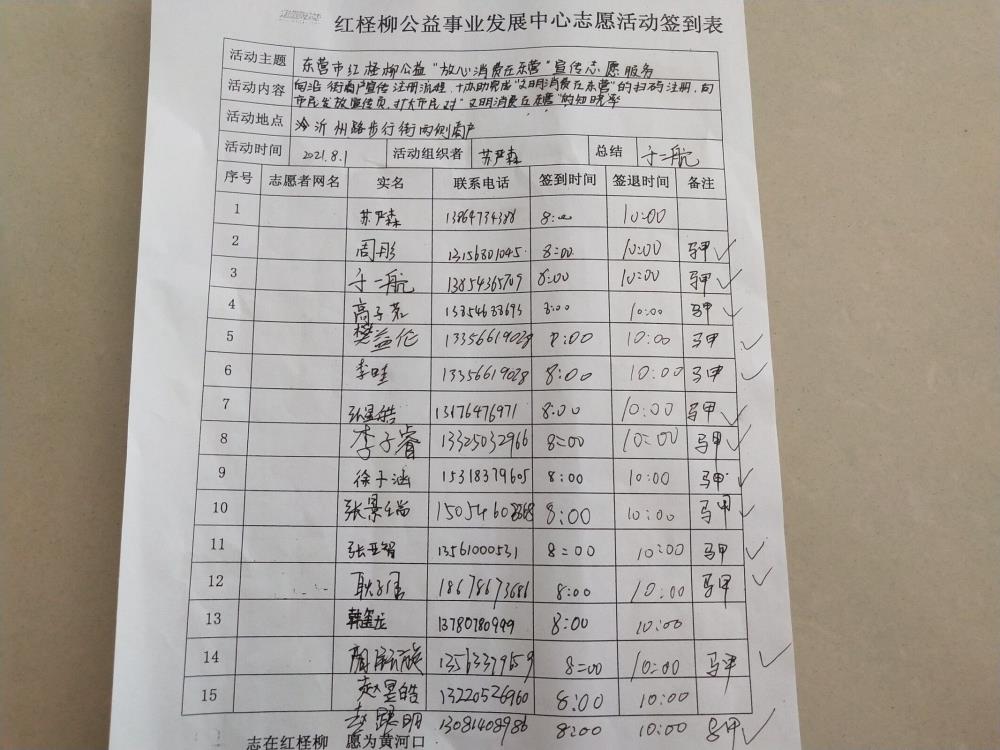 红柽柳公益事业发展中心志愿活动签到表
活动主题 东营市红柽柳公益“放心消费在东营”宣传志愿服务
活动内容 向沿街商户宣传注册流程,协助完成“文明消费在东营”的扫码注册,向
市民发放宣传页,扩大市民对“文明消费在东营”的知晓率
活动地点 沂州路步行街两侧商户
活动时间 2021.8.1 活动组织者 苏严森 总结 于二航
序号 志愿者网名 实名 联系电话 签到时间 签退时间 备注
1 苏严森 13864734388 8:00 10:00
2 周彤 13156801045 8:00 10:00 马甲 ✓
3 于二航 13854365709 8:00 10:00 马甲 ✓
4 高子茗 13854688693 8:00 10:00 马甲 ✓
5 樊益伦 13356619028 8:00 10:00 马甲 ✓
6 李哇 13356619028 8:00 10:00 马甲 ✓
7 张昱皓 13176476971 8:00 10:00 马甲 ✓
8 李子睿 13325032966 8:00 10:00 马甲 ✓
9 徐子涵 15318379605 8:00 10:00 马甲 ✓
10 张景瑞 8:00 10:00 马甲 ✓
11 张亚智 13561000531 8:00 10:00 马甲 ✓
12 18678673686 8:00 10:00 马甲 ✓
13 13780780999 8:00 10:00
14 13563379659 8:00 10:00 马甲 ✓
15 赵昱皓 13220526960 8:00 10:00
13081408986 8:00 10:00 马甲 ✓
志在红柽柳 愿为黄河口